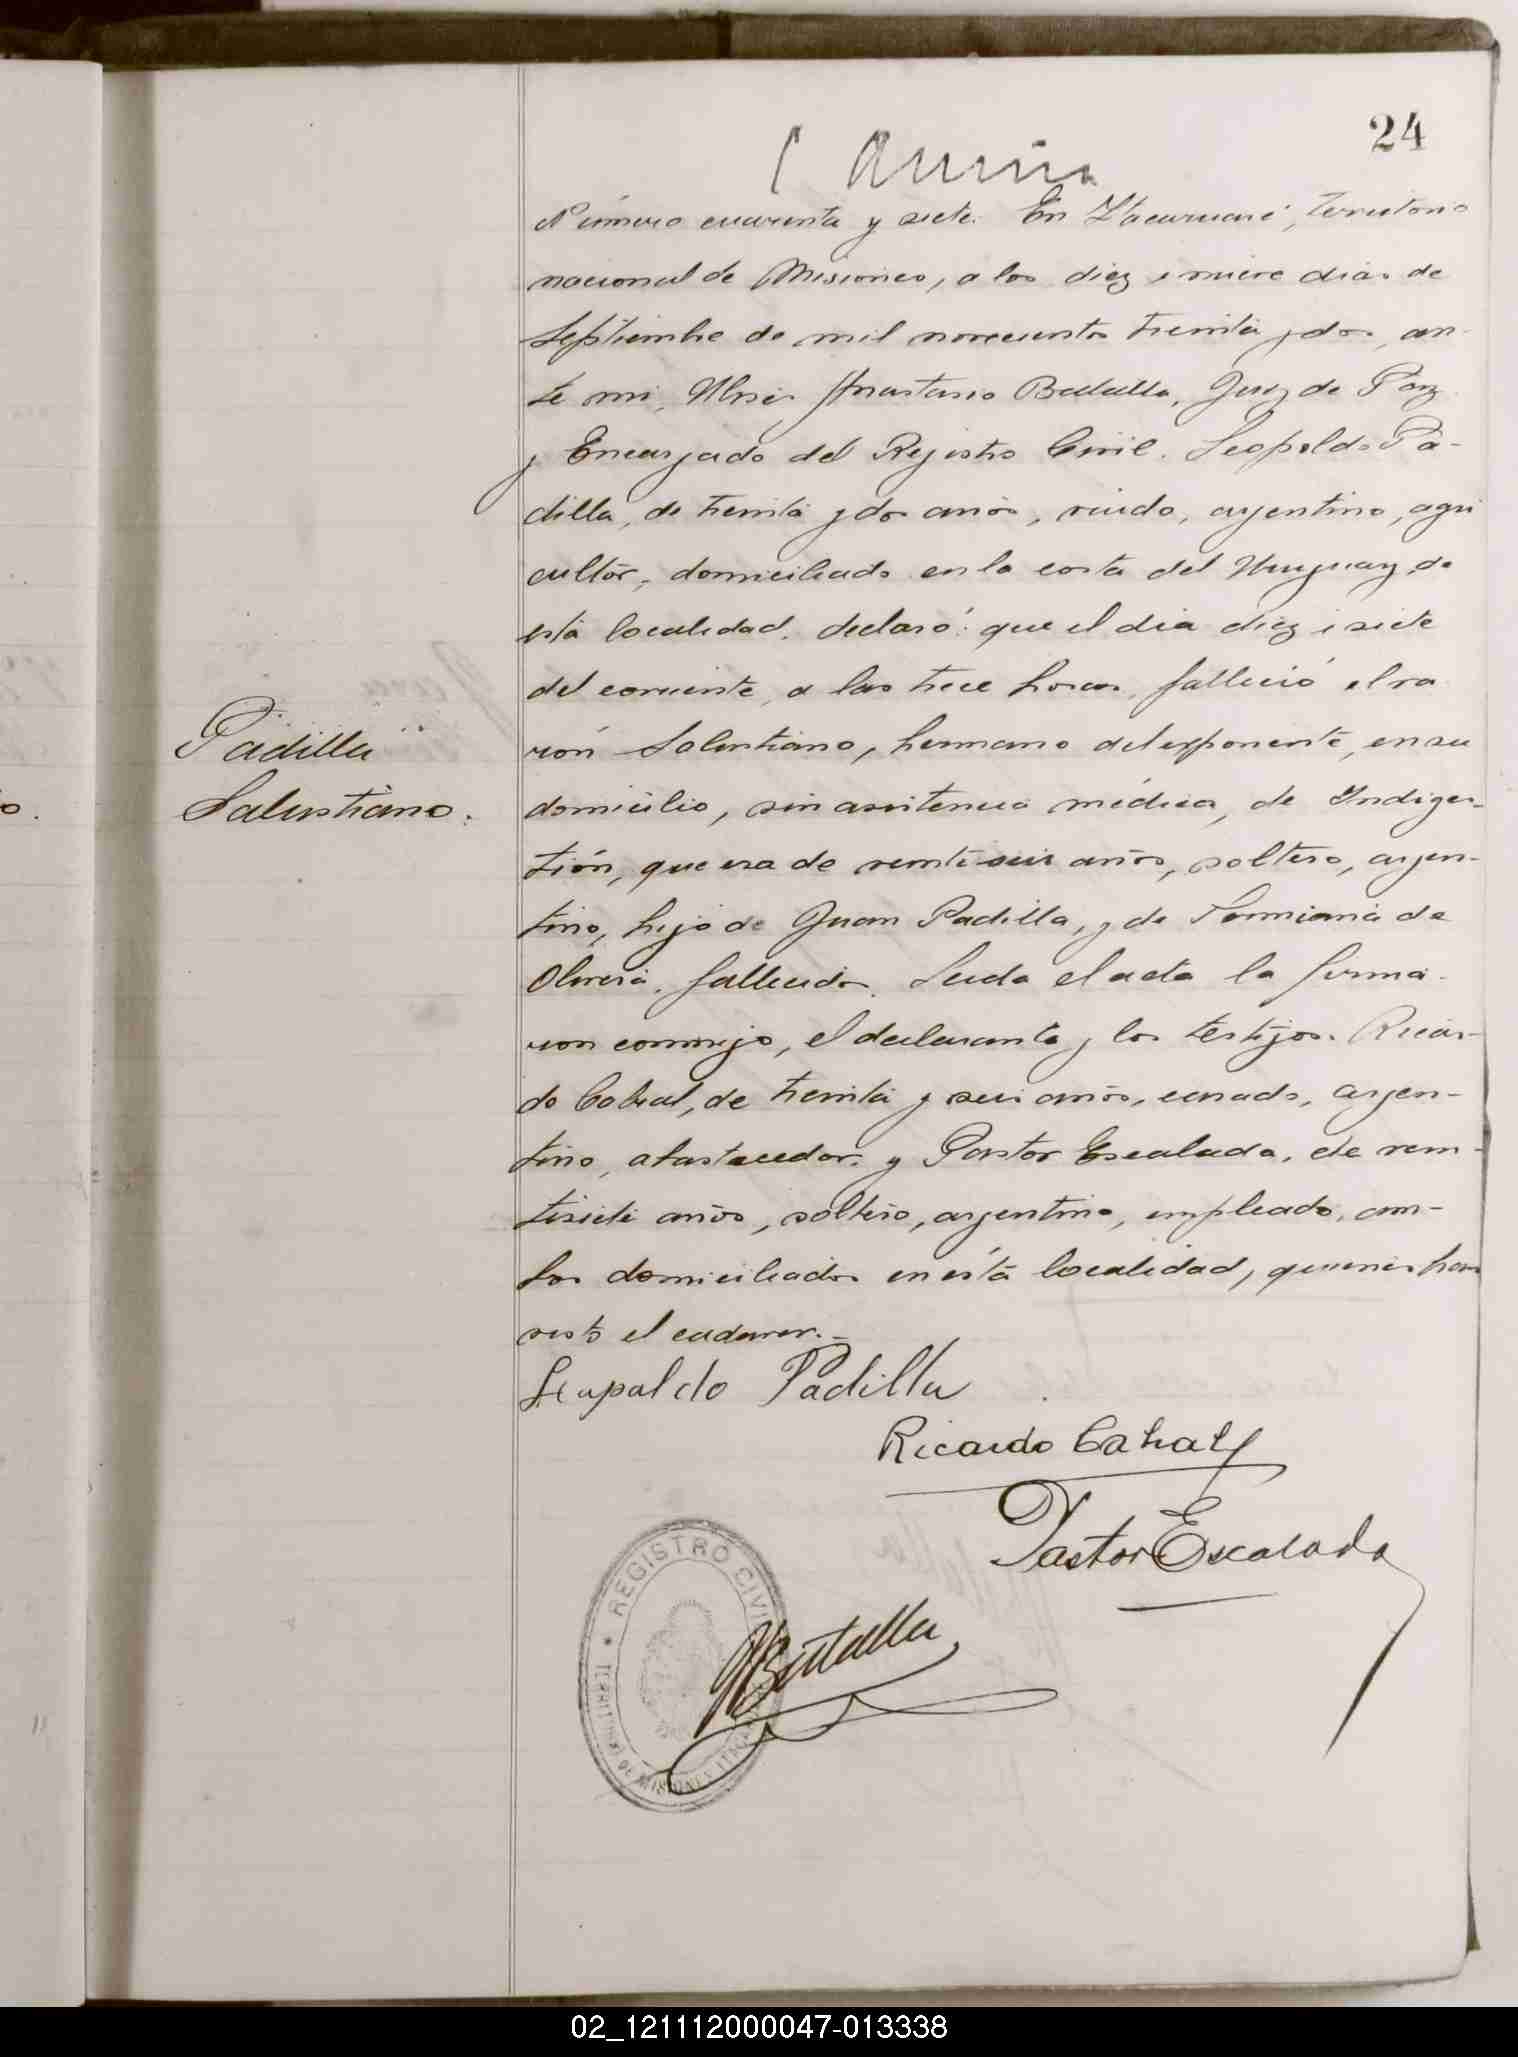 24
Número cuarenta y siete. En Itacaruaré, territorio
nacional de Misiones, a los diez i nueve dias de
Septiembre de mil novecientos treinta y dos, an-
te mi, Anastasio Batalla, Juez de Paz
y Encargado del Registro Civil. Leopoldo Pa-
dilla, de treinta y dos años, viudo, argentino, agri
cultor, domiciliado en la costa del Uruguay, de
esta localidad, declaró: que el dia diez i siete
del corriente, a las trece horas, falleció el va
rón Salustiano, hermano del exponente, en su
domicilio, sin asistencia médica, de Indiges-
tión, que era de veintiseis años, soltero, argen-
tino, hijo de Juan Padilla, y de de
Olivera, fallecidos. Leida el acta la firma-
ron conmigo, el declarante y los testigos. Ricar-
do Cabral, de treinta y seis años, casado, argen-
tino, abastecedor, y Pastor Escalada, de vein-
tisiete años, soltero, argentino, empleado, am-
bos domiciliados en ésta localidad, quienes han
visto el cadaver.-
Padilla
Salustiano.
Leupaldo Padilla
Ricardo Cabral
Pastor Escalada
REGISTRO CIVIL
TERRITORIO DE MISIONES
Batalla
02_121112000047-013338